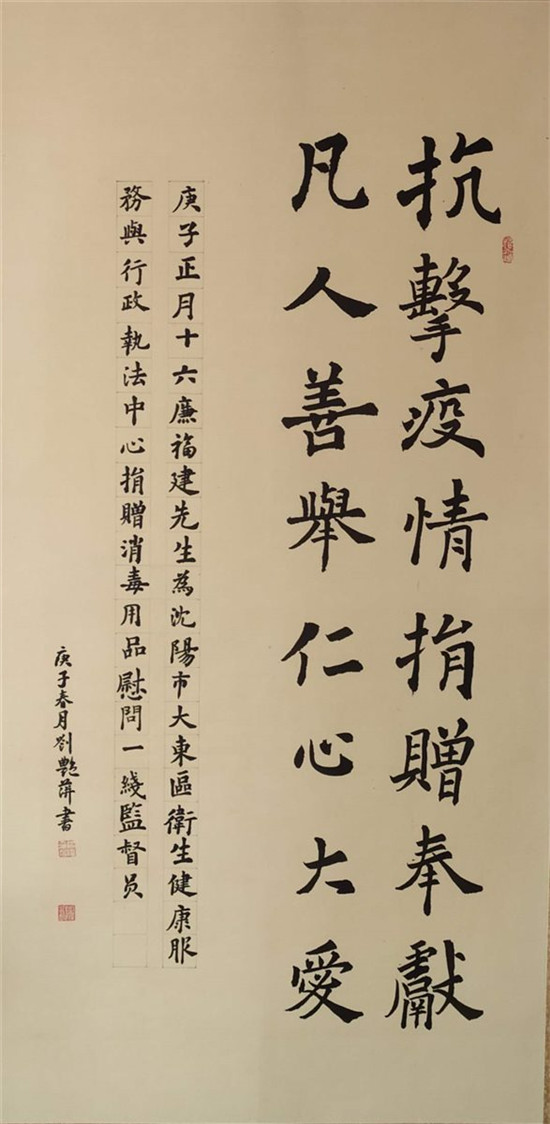 抗擊疫情捐贈奉獻
凡人善舉仁心大愛
庚子正月十六廉福建先生為沈陽市大東區衛生健康服
務與行政執法中心捐贈消毒用品慰問一綫監督员
庚子春月劉艷萍書